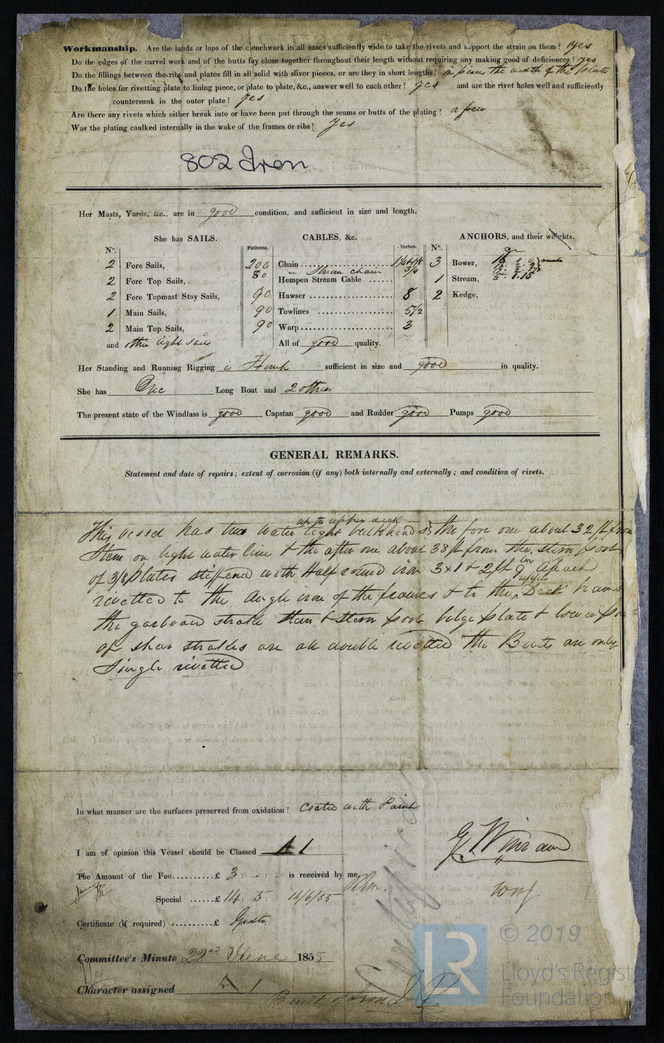 Workmanship. Are the lands or laps of the clenchwork in all cases sufficiently wide to take the rivets and support the strain on them? yes
Do the edges of the carvel work and of the butts fay close together throughout their length without requiring any making good of deficiences? yes
Do the fillings between the ribs and plates fill in all solid with sliver pieces, or are they in short lengths? a piece the width of the plate
Do the holes for rivetting plate to lining piece, or plate to plate, &c., answer well to each other? yes and are the rivet holes well and sufficiently
countersunk in the outer plate? yes
Are there any rivets which either break into or have been put through the seams or butts of the plating? a few
Was the plating caulked internally in the wake of the frames or ribs? yes
802 Iron
Her Masts, Yards, &c., are in good condition, and sufficient in size and length.
She has SAILS. CABLES, &c. ANCHORS, and their weights.
N°. Fathoms. Inches. N°.
2 Fore Sails, 200 Chain 3 Bower,
2 Fore Top Sails, 80 Hempen Stream Cable 1 Stream,
2 Fore Topmast Stay Sails, 90 Hawser 8 2 Kedge,
1 Main Sails, 90 Towlines 5½
2 Main Top Sails, 90 Warp 3
and other light sails All of good quality.
Her Standing and Running Rigging is Hemp sufficient in size and good in quality.
She has One Long Boat and 2 others
The present state of the Windlass is good Capstan good and Rudder good Pumps good
GENERAL REMARKS.
Statement and date of repairs; extent of corrosion (if any) both internally and externally; and condition of rivets.
up to upper deck
This vessel has two water tight bulkheads the fore one about 32 ft from
Stem on light water line & the after one about 38 ft from the stern post
of 3/8 plates stiffened with Half round iron 3 x 1 & 2 ft 9 in apart
rivetted to the angle iron of the frames & to the upper Deck beams
the garboard strake stem & stern post bilge plate & lower
of shear strakes are all double rivetted the Butts are only
Single rivetted
In what manner are the surfaces preserved from oxidation? Coated with Paint
I am of opinion this Vessel should be Classed A 1
The Amount of the Fee £ 3 : - : - is received by me,
Special £ 14 : 5 : 16/6/55
Certificate (if required) £ Gratis
Committee's Minute 22nd June 1855
Character assigned A 1
Built of Iron
© 2019
LR
Lloyd's Register
Foundation